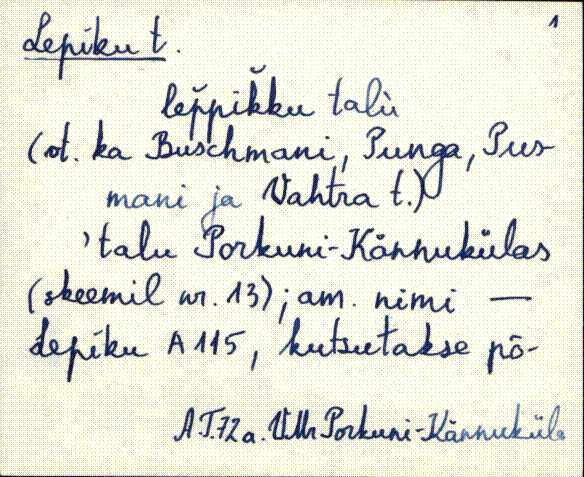 1
Lepiku t.
lep̆pik̆ku talù
(vt. ka Buschmani, Punga, Pus-
mani ja Vahtra t.)
'talu Porkuni-Kännukülas
(skeemil nr. 13); am. nimi —
Lepiku A 115, kutsutakse pō-
A.T.72a. VMr Porkuni-Kännuküla